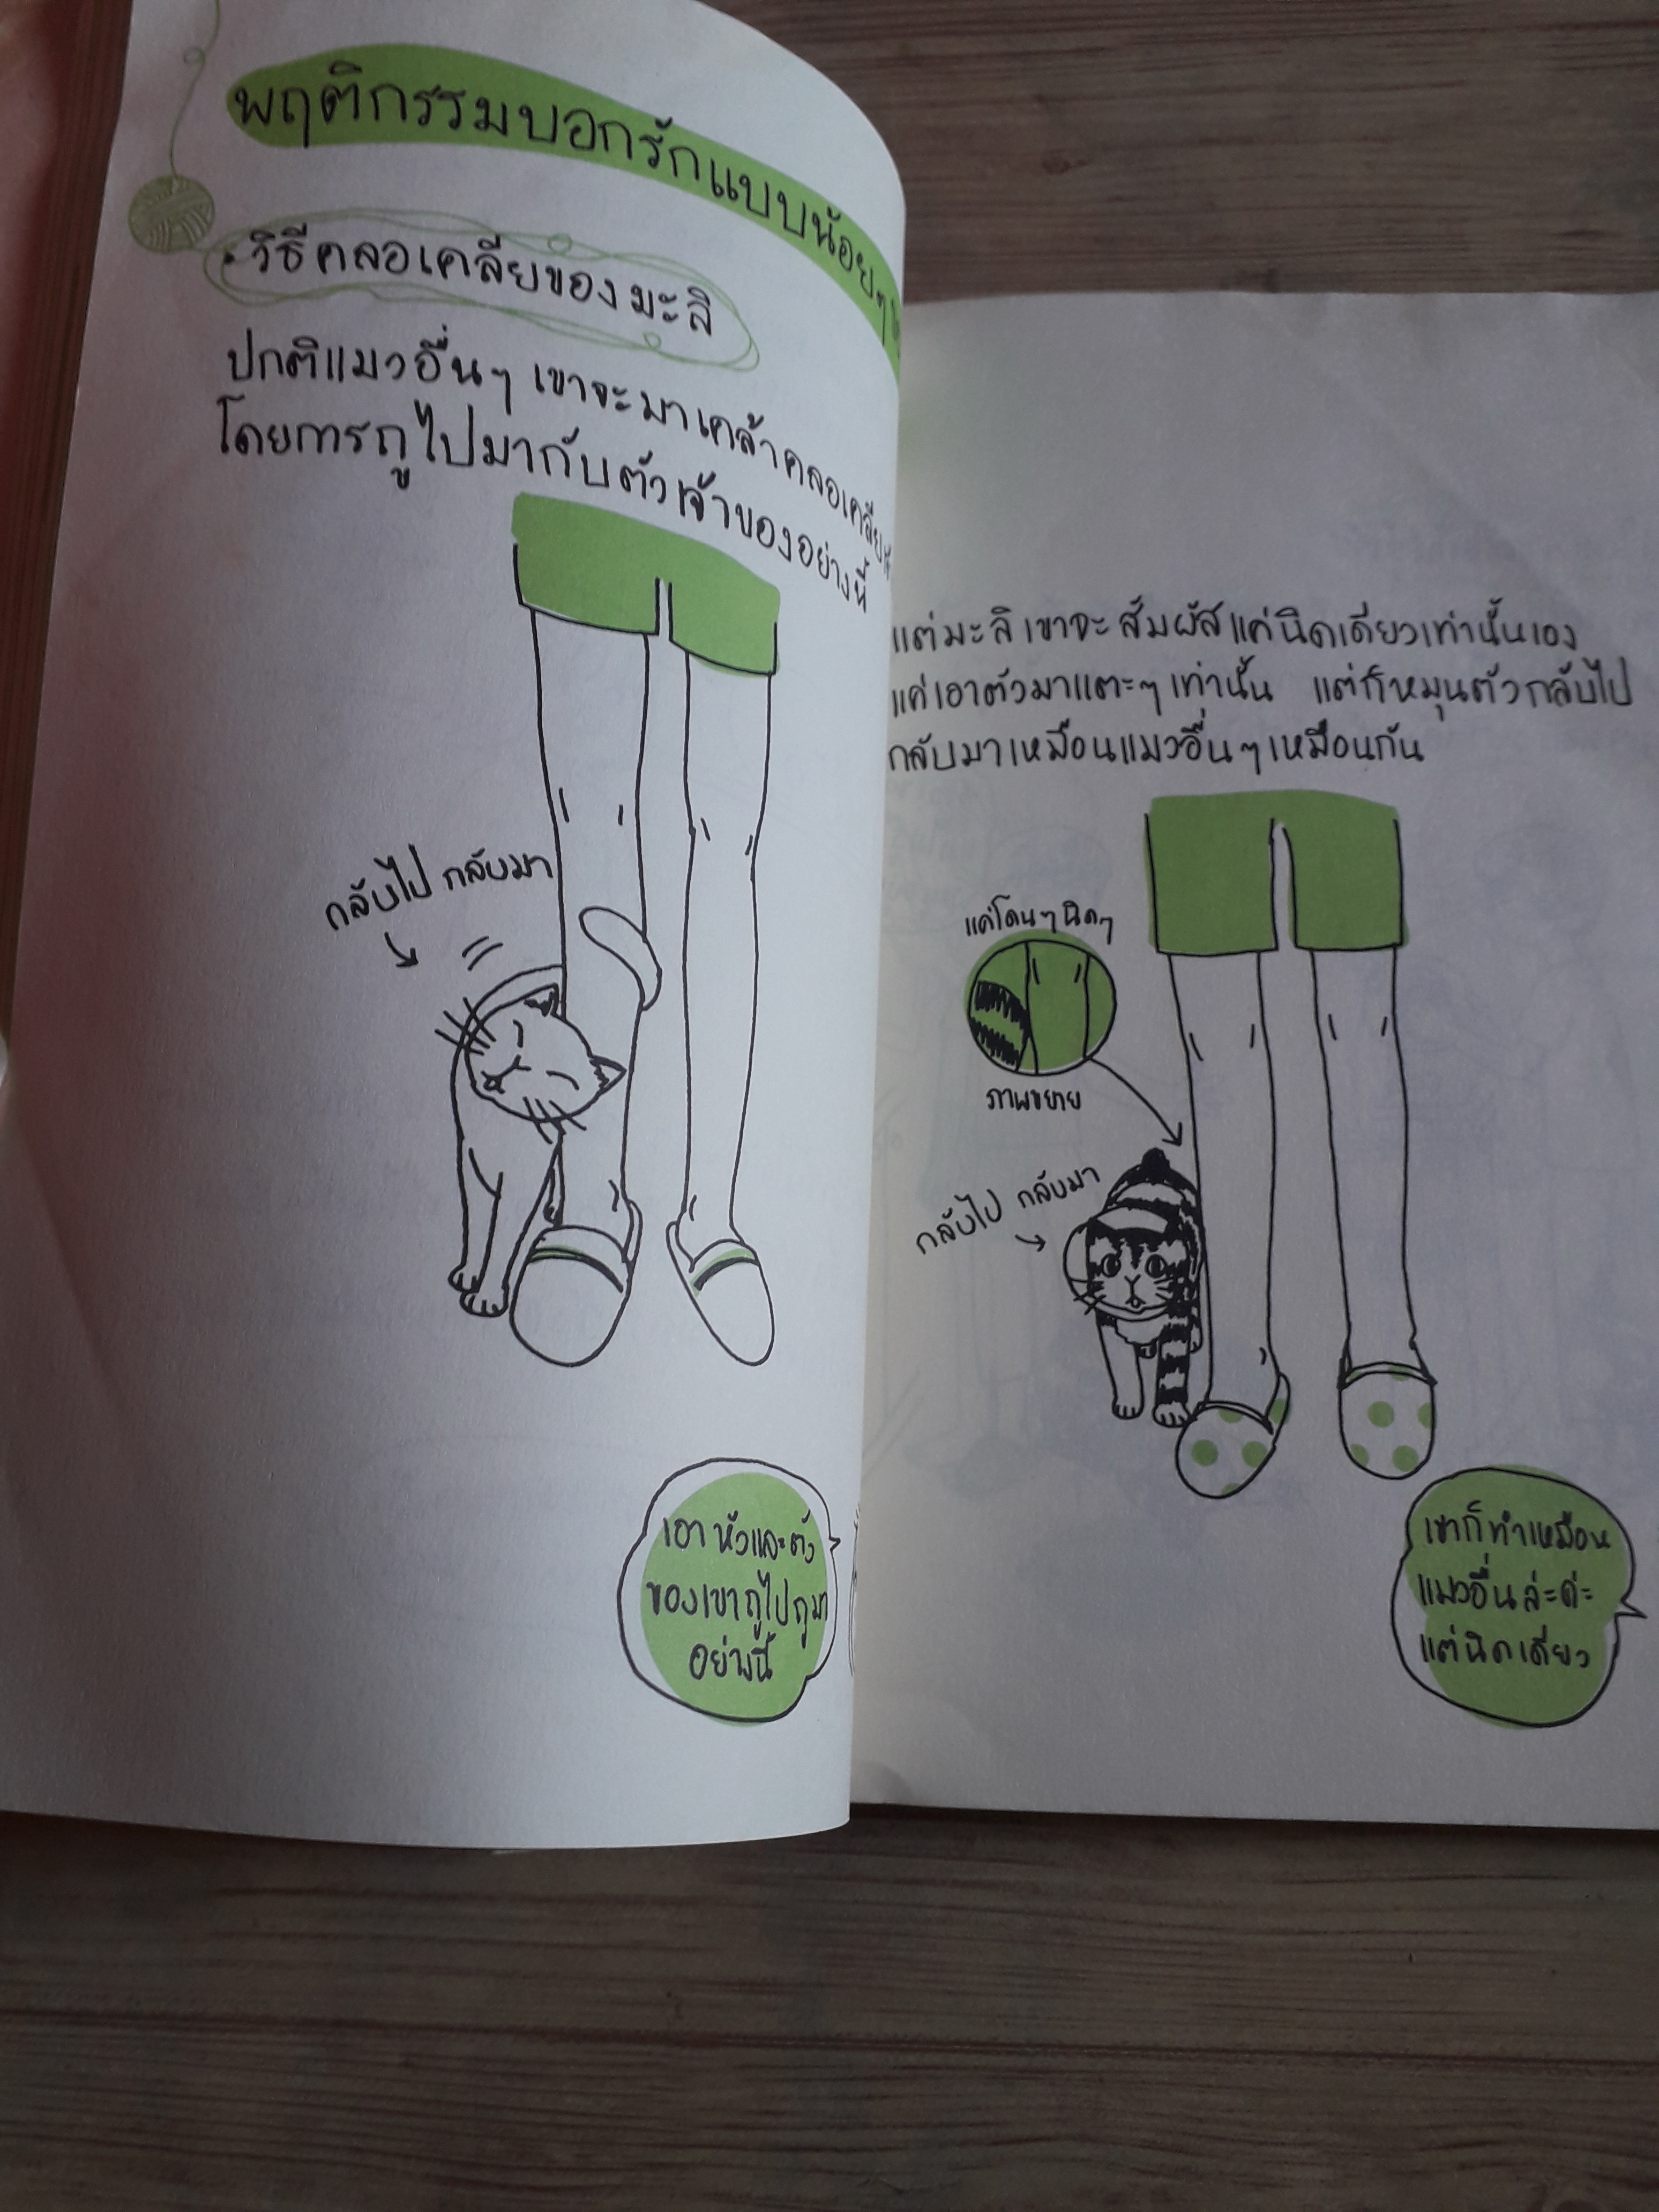 พฤติกรรมบอกรักแบบน้อยๆ
• วิธีคลอเคลียของมะลิ
ปกติแมวอื่นๆ เขาจะมาเคล้าคลอเคลีย
โดยการถูไปมากับตัวเจ้าของอย่างนี้
กลับไป กลับมา
เอาหัวและตัว
ของเขาถูไปถูมา
อย่างนี้
แต่มะลิเขาจะสัมผัสแค่นิดเดียวเท่านั้นเอง
แค่เอาตัวมาแตะๆเท่านั้น แต่ก็หมุนตัวกลับไป
กลับมาเหมือนแมวอื่นๆเหมือนกัน
แค่โดนๆนิดๆ
ภาพขยาย
กลับไป กลับมา
เขาก็ทำเหมือน
แมวอื่นล่ะค่ะ
แต่นิดเดียว